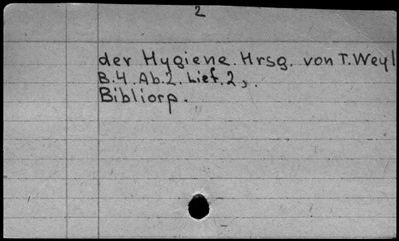 2
der Hygiene. Hrsg. von T. Weyl
B.4. Ab.2. Lief.2,.
Bibliorp.